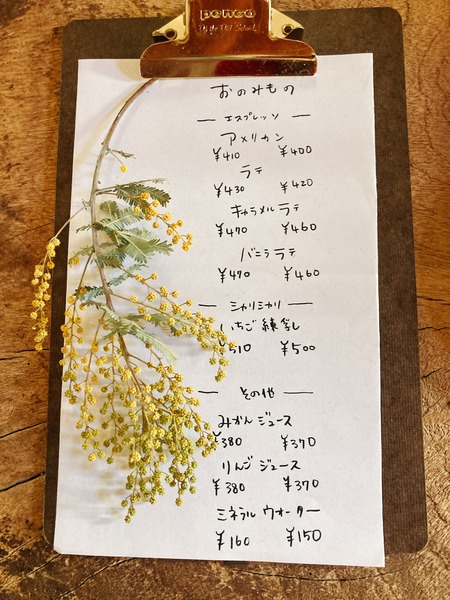 penco
おのみもの
— エスプレッソ —
アメリカン
¥410 ¥400
ラテ
¥430 ¥420
キャラメルラテ
¥470 ¥460
バニララテ
¥470 ¥460
— シャリシャリ —
いちご練乳
¥510 ¥500
— その他 —
みかんジュース
¥380 ¥370
りんごジュース
¥380 ¥370
ミネラルウォーター
¥160 ¥150